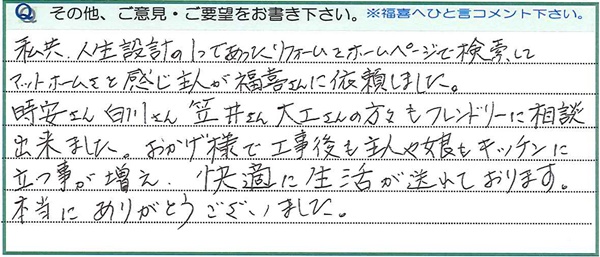 Q その他、ご意見・ご要望をお書き下さい。※福喜へひと言コメント下さい。
私共、人生設計の1つであったリフォームをホームページで検索して
アットホームさを感じ主人が福喜さんに依頼しました。
時安さん 白川さん 笠井さん 大工さんの方々もフレンドリーに相談
出来ました。おかげ様で工事後も主人や娘もキッチンに
立つ事が増え、快適に生活が送れております。
本当にありがとうございました。